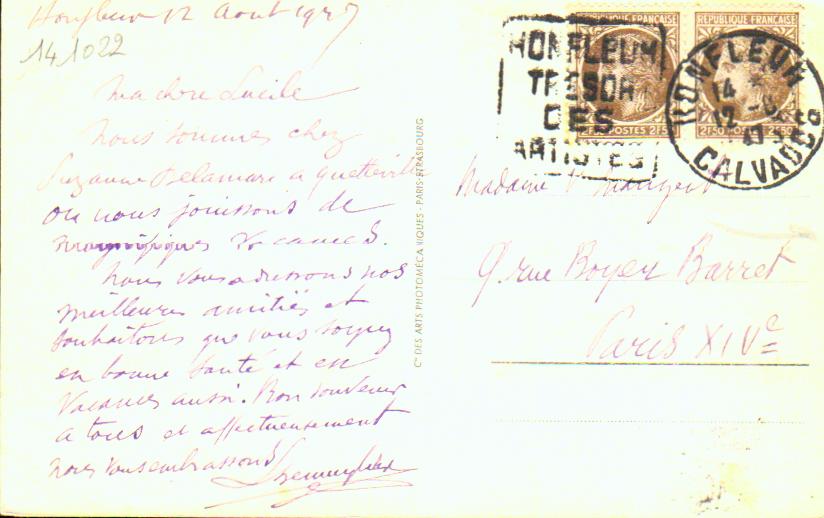 Honfleur 12 Août 1947
141022
Ma chère Lucile
Nous sommes chez
Suzanne Delamare a Quetteville
ou nous jouissons de
magnifiques vacances.
Nous vous adressons nos
meilleures amitiés et
souhaitons que vous soyez
en bonne santé et en
vacances aussi. Bon souvenir
a tous et affectueusement
nous vous embrassons
HONFLEUR
TRESOR
DES
ARTISTES
REPUBLIQUE FRANÇAISE
POSTES 2F50
REPUBLIQUE FRANÇAISE
2F50 POSTES 2F50
HONFLEUR
14
12 -8
47
CALVADOS
Cie DES ARTS PHOTOMÉCANIQUES - PARIS-STRASBOURG
Madame
9 rue Boyer Barret
Paris XIVe